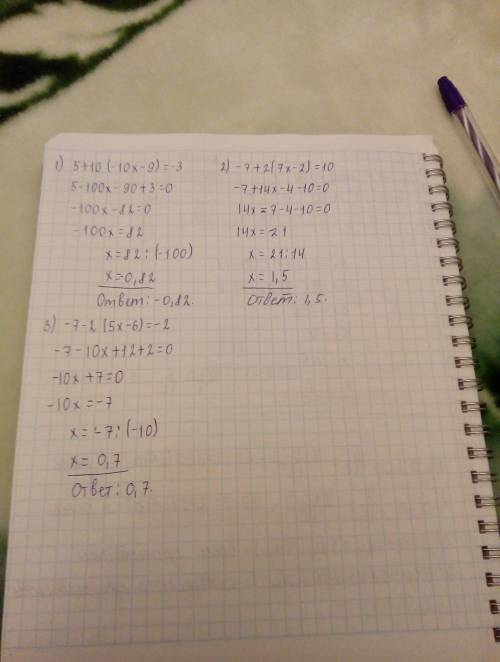 1) 5+10(-10x-9)=-3
5-100x-90+3=0
-100x-82=0
-100x=82
x=82:(-100)
x=0,82
Ответ: -0,82.
2) -7+2(7x-2)=10
-7+14x-4-10=0
14x=7-4-10=0
14x=21
x=21:14
x=1,5
Ответ: 1,5.
3) -7-2(5x-6)=-2
-7-10x+12+2=0
-10x+7=0
-10x=-7
x=-7:(-10)
x=0,7
Ответ: 0,7.